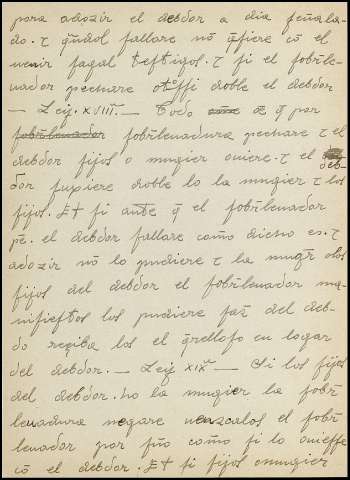 para adozir el debdor a dia señala-
do. τ qñdol fallare nõ qsiere cõ el
uenir fagal testigos. τ si el sobrle-
uador pechare otossi doble el debdor
— Ley. xviiiª. — Todo ome q por
sobrleuador sobrleuadura pechare τ el
debdor fijos o mugier ouiere. τ el deb-
dor fuxiere doble lo la mugier τ los
fijos. Et si ante q el sobrleuador
pe. el debdor fallare como dicho es. τ
adozir nõ lo pudiere τ la mugr o los
fijos del debdor el sobrleuador ma-
nifiestos los pudiere faz del deb-
do reciba los el qrelloso en logar
del debdor. — Ley xixª — Si los fijos
del debdor. ho la mugier la sobr
leuadura negare uenzcalos el sobr
leuador por fuo como si lo ouiesse
cõ el debdor. Et si fijos omugier